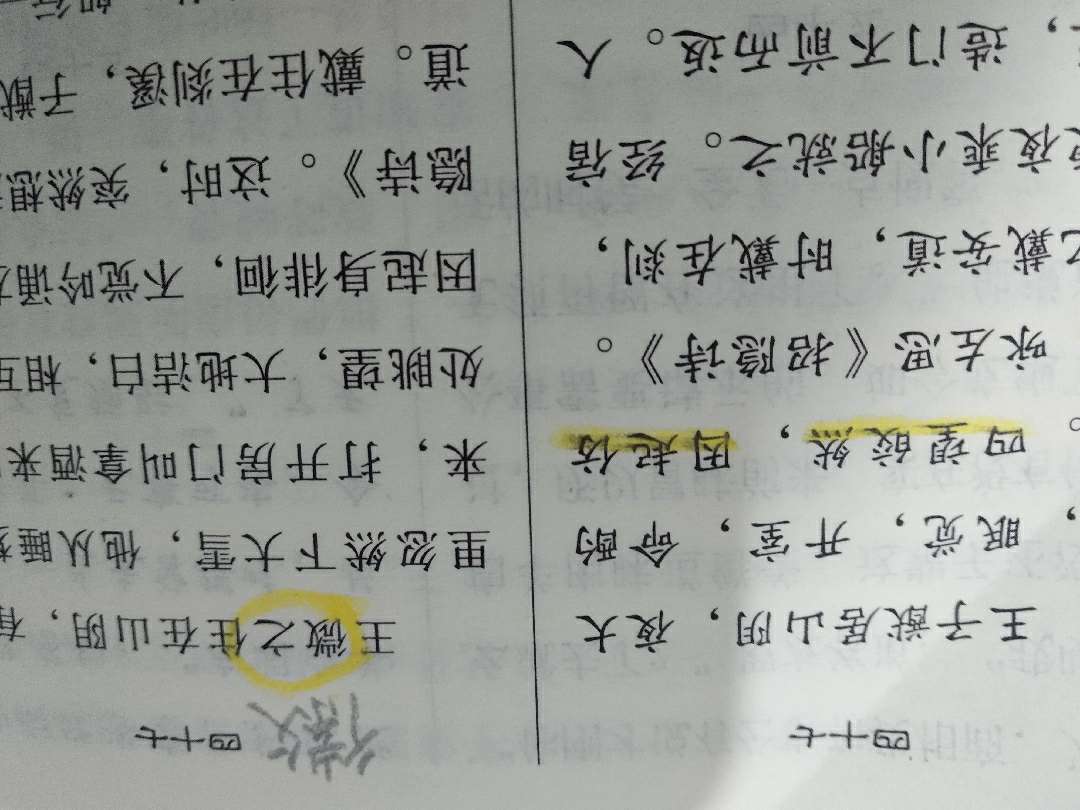 四十七
王子猷居山阴，夜大
，眠觉，开室，命酌
。四望皎然，因起彷
咏左思《招隐诗》。
戴安道，时戴在剡，
夜乘小船就之。经宿
，造门不前而返。人
四十七
徽
王微之住在山阴，有
里忽然下大雪，他从睡
来，打开房门叫拿酒来
处眺望，大地洁白，相互
因起身徘徊，不觉吟诵左
隐诗》。这时，突然想
道。戴住在剡溪，子猷